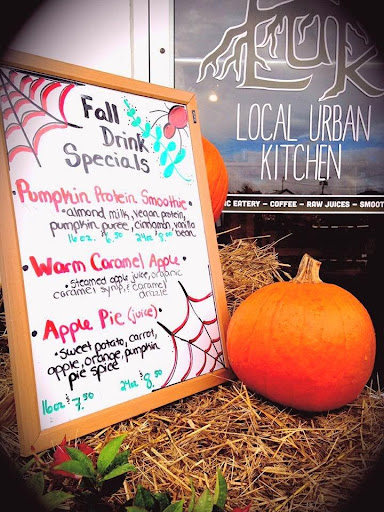 Fall
Drink
Specials
• Pumpkin Protein Smoothie
• almond milk, vegan protein,
pumpkin puree, cinnamon, vanilla
16oz. $6.50 24oz $9.00 bean
• Warm Caramel Apple
• steamed apple juice, organic
caramel syrup & caramel
drizzle
• Apple Pie (juice)
• sweet potato, carrot,
apple, orange, pumpkin
pie spice
16oz $7.50 24oz $8.50
LOCAL URBAN
KITCHEN
EATERY – COFFEE – RAW JUICES –